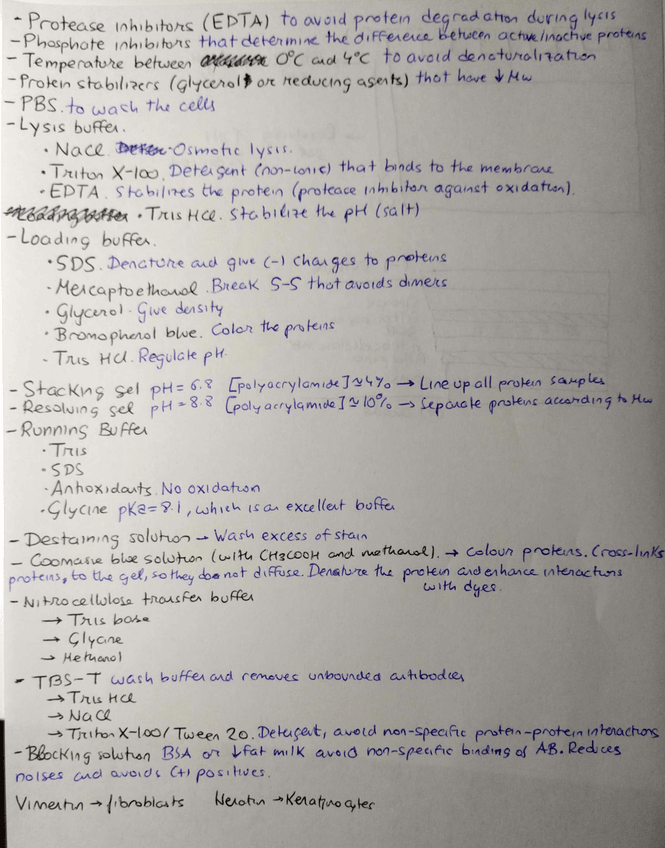 - Protease inhibitors (EDTA) to avoid protein degradation during lysis
- Phosphate inhibitors that determine the difference between active/inactive proteins
- Temperature between 0°C and 4°C to avoid denaturalization
- Protein stabilizers (glycerol or reducing agents) that have ↓ Mw
- PBS. to wash the cells
- Lysis buffer.
• NaCl. Osmotic lysis.
• Triton X-100. Detergent (non-ionic) that binds to the membrane
• EDTA. Stabilizes the protein (protease inhibitor against oxidation).
• Tris HCl. Stabilize the pH (salt)
- Loading buffer.
• SDS. Denature and give (-) charges to proteins
• Mercaptoethanol. Break S-S that avoids dimers
• Glycerol. Give density
• Bromophenol blue. Color the proteins
• Tris HCl. Regulate pH.
- Stacking gel pH = 6.8 [polyacrylamide] ≈ 4% → Line up all protein samples
- Resolving gel pH = 8.8 [polyacrylamide] ≈ 10% → Separate proteins according to Mw
- Running Buffer
• Tris
• SDS
• Antioxidants. No oxidation
• Glycine pKa = 8.1, which is an excellent buffer
- Destaining solution → Wash excess of stain
- Coomasie blue solution (with CH3COOH and methanol). → Colour proteins. Cross-links
proteins, to the gel, so they do not diffuse. Denature the protein and enhance interactions
with dyes.
- Nitrocellulose transfer buffer
→ Tris base
→ Glycine
→ Methanol
- TBS-T wash buffer and removes unbounded antibodies
→ Tris HCl
→ NaCl
→ Triton X-100/Tween 20. Detergent, avoid non-specific protein-protein interactions
- Blocking solution BSA or ↓fat milk avoid non-specific binding of AB. Reduces
noises and avoids (+) positives.
Vimentin → fibroblasts Keratin → Keratinocytes